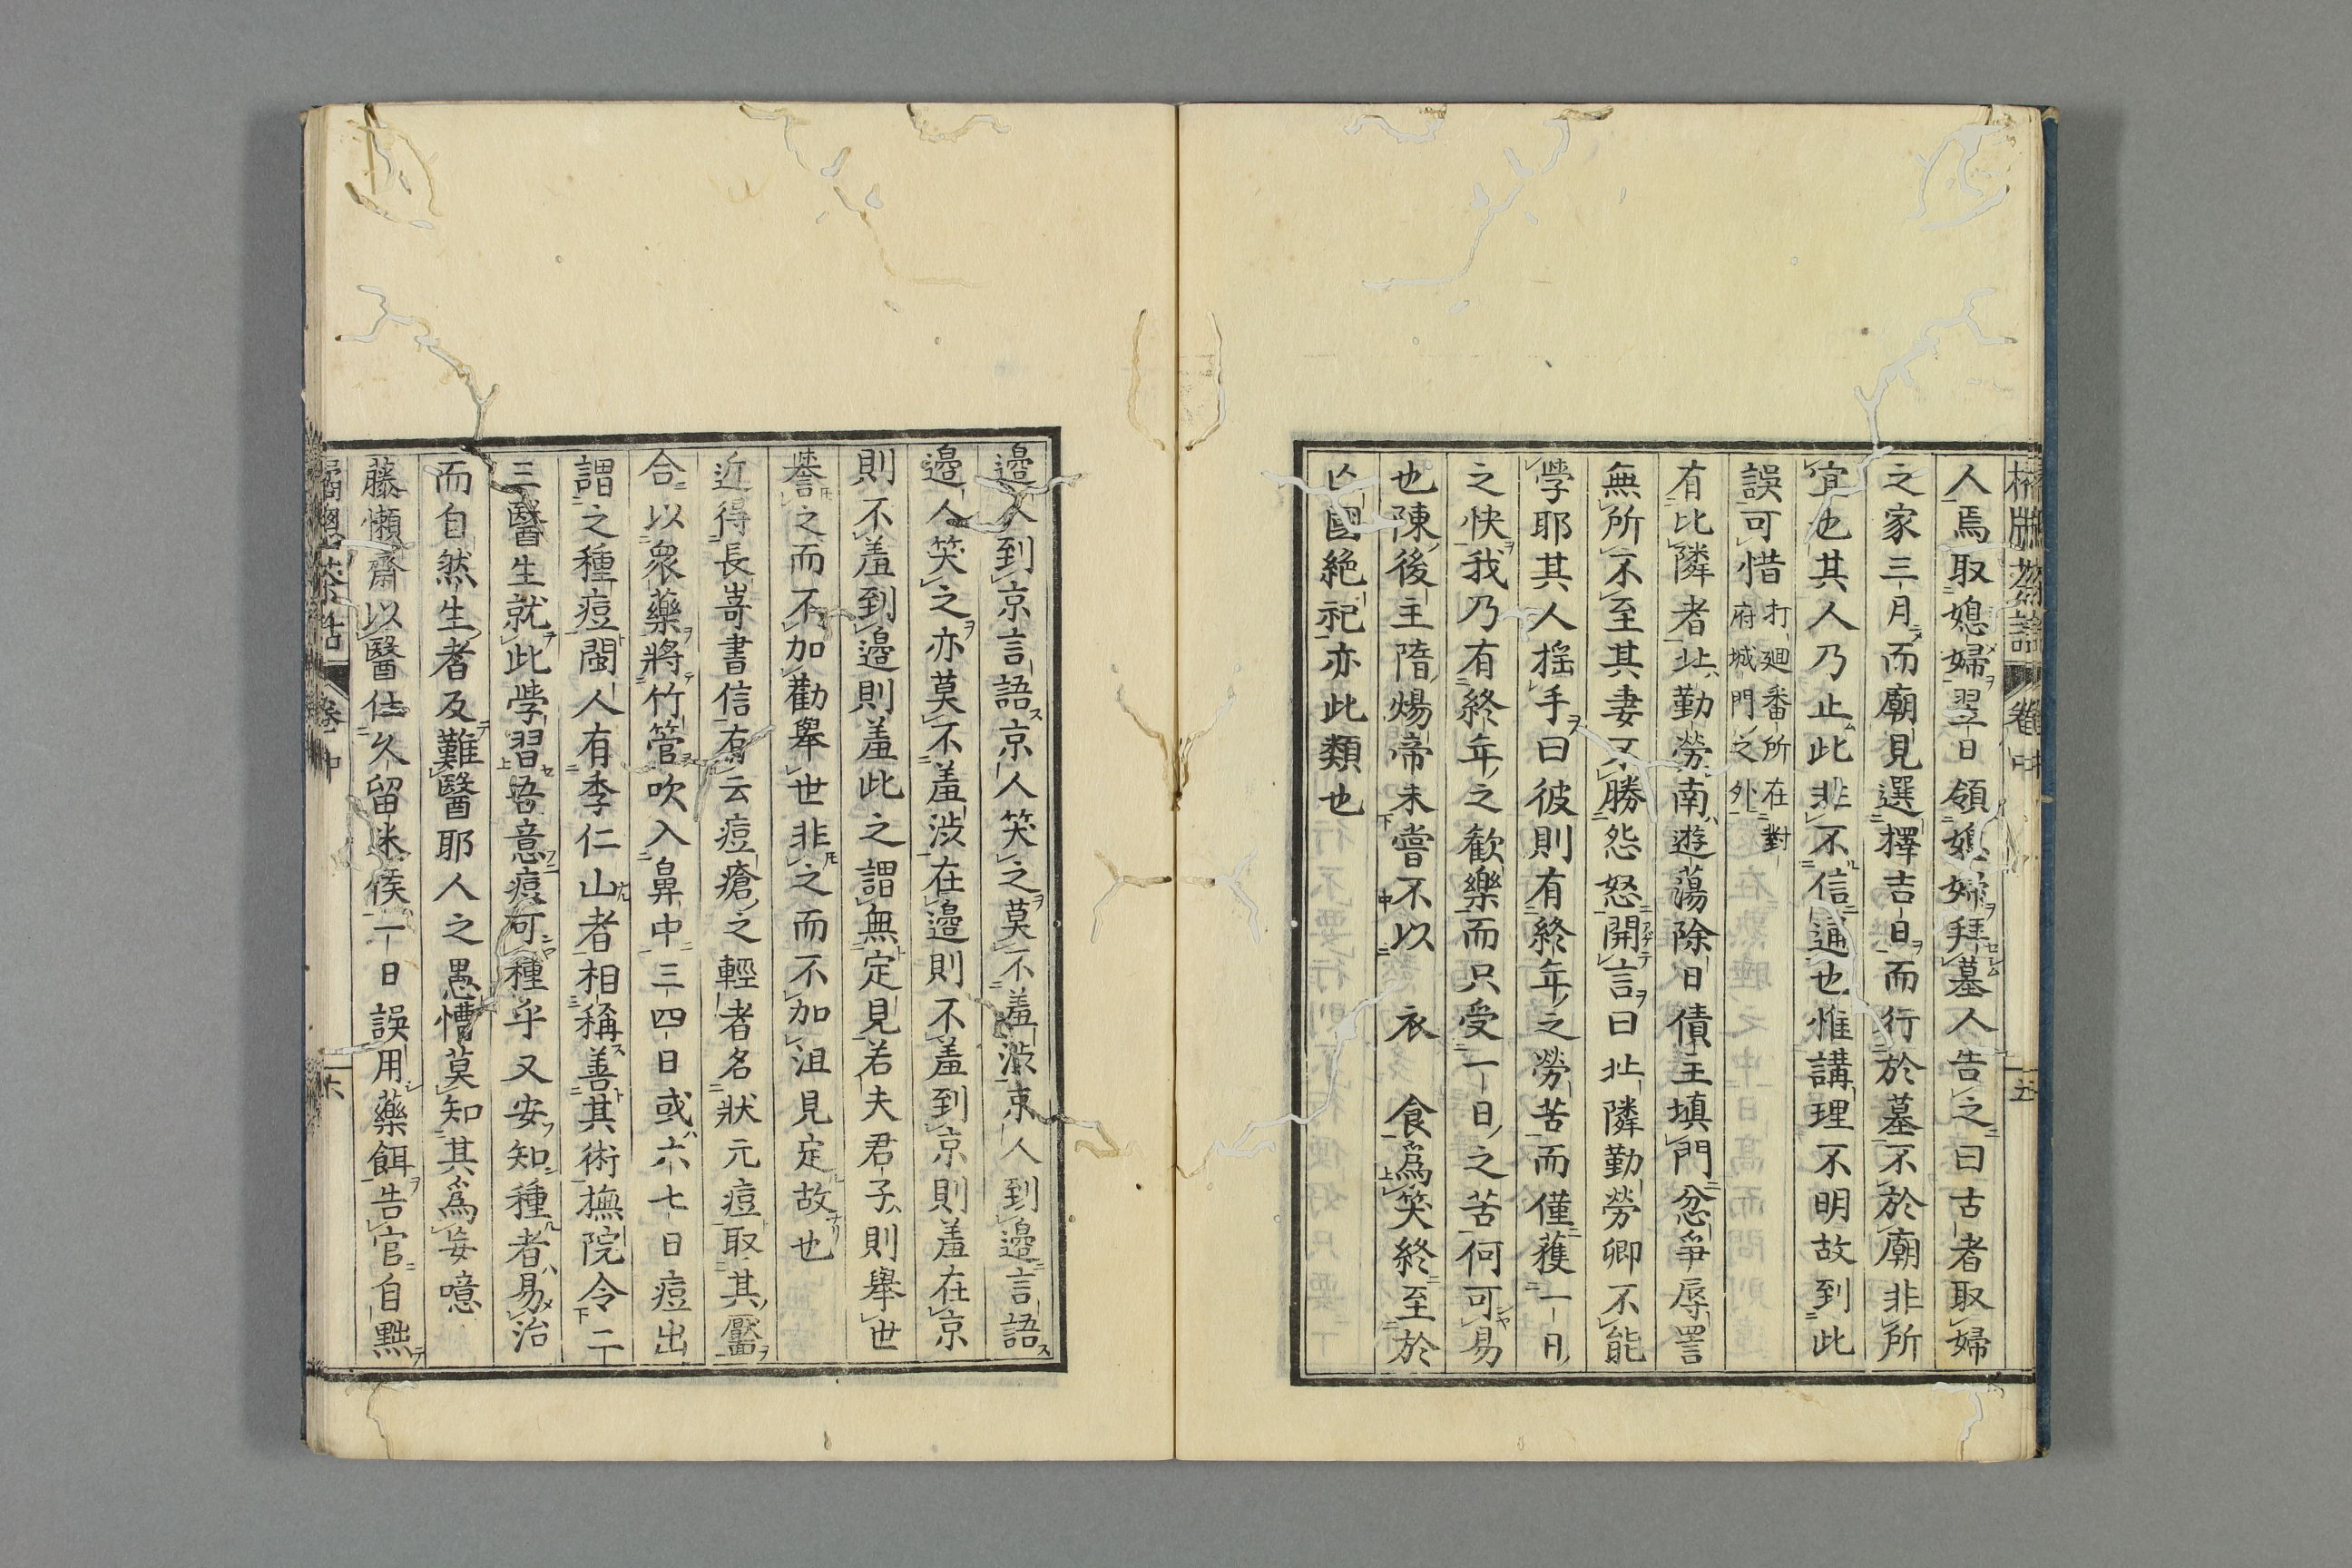 卷中
五
人焉取媳婦翌日領媳婦拜墓人告之曰古者取婦
之家三月而廟見選擇吉日而行於墓不於廟非所
宜也其人乃止此非不信道也惟講理不明故到此
誤可惜打廻番所在對府城門之外
有比隣者北勤勞南遊蕩除日債主填門忿爭辱詈
無所不至其妻不勝怨怒開言曰北隣勤勞卿不能
學耶其人搖手曰彼則有終年之勞苦而僅獲一日
之快我乃有終年之歡樂而只受一日之苦何可易
也陳後主隋煬帝未嘗不以衣食爲笑終至於
亾國絶祀亦此類也
邉人到京言語京人笑之莫不羞澁京人到邉言語
邉人笑之亦莫不羞澁在邉則不羞到京則羞在京
則不羞到邉則羞此之謂無定見若夫君子則舉世
譽之而不加勸舉世非之而不加沮見定故也
近得長崎書信有云痘瘡之輕者名狀元痘取其靨
合以衆藥將竹管吹入鼻中三四日或六七日痘出
謂之種痘閩人有李仁山者相稱善其術撫院令二
三醫生就此學習吾意痘可種乎又安知種者易治
而自然生者及難醫耶人之愚懵莫知其爲妄噫
藤懶齋以醫仕久留米侯一日誤用藥餌告官自黜
卷中